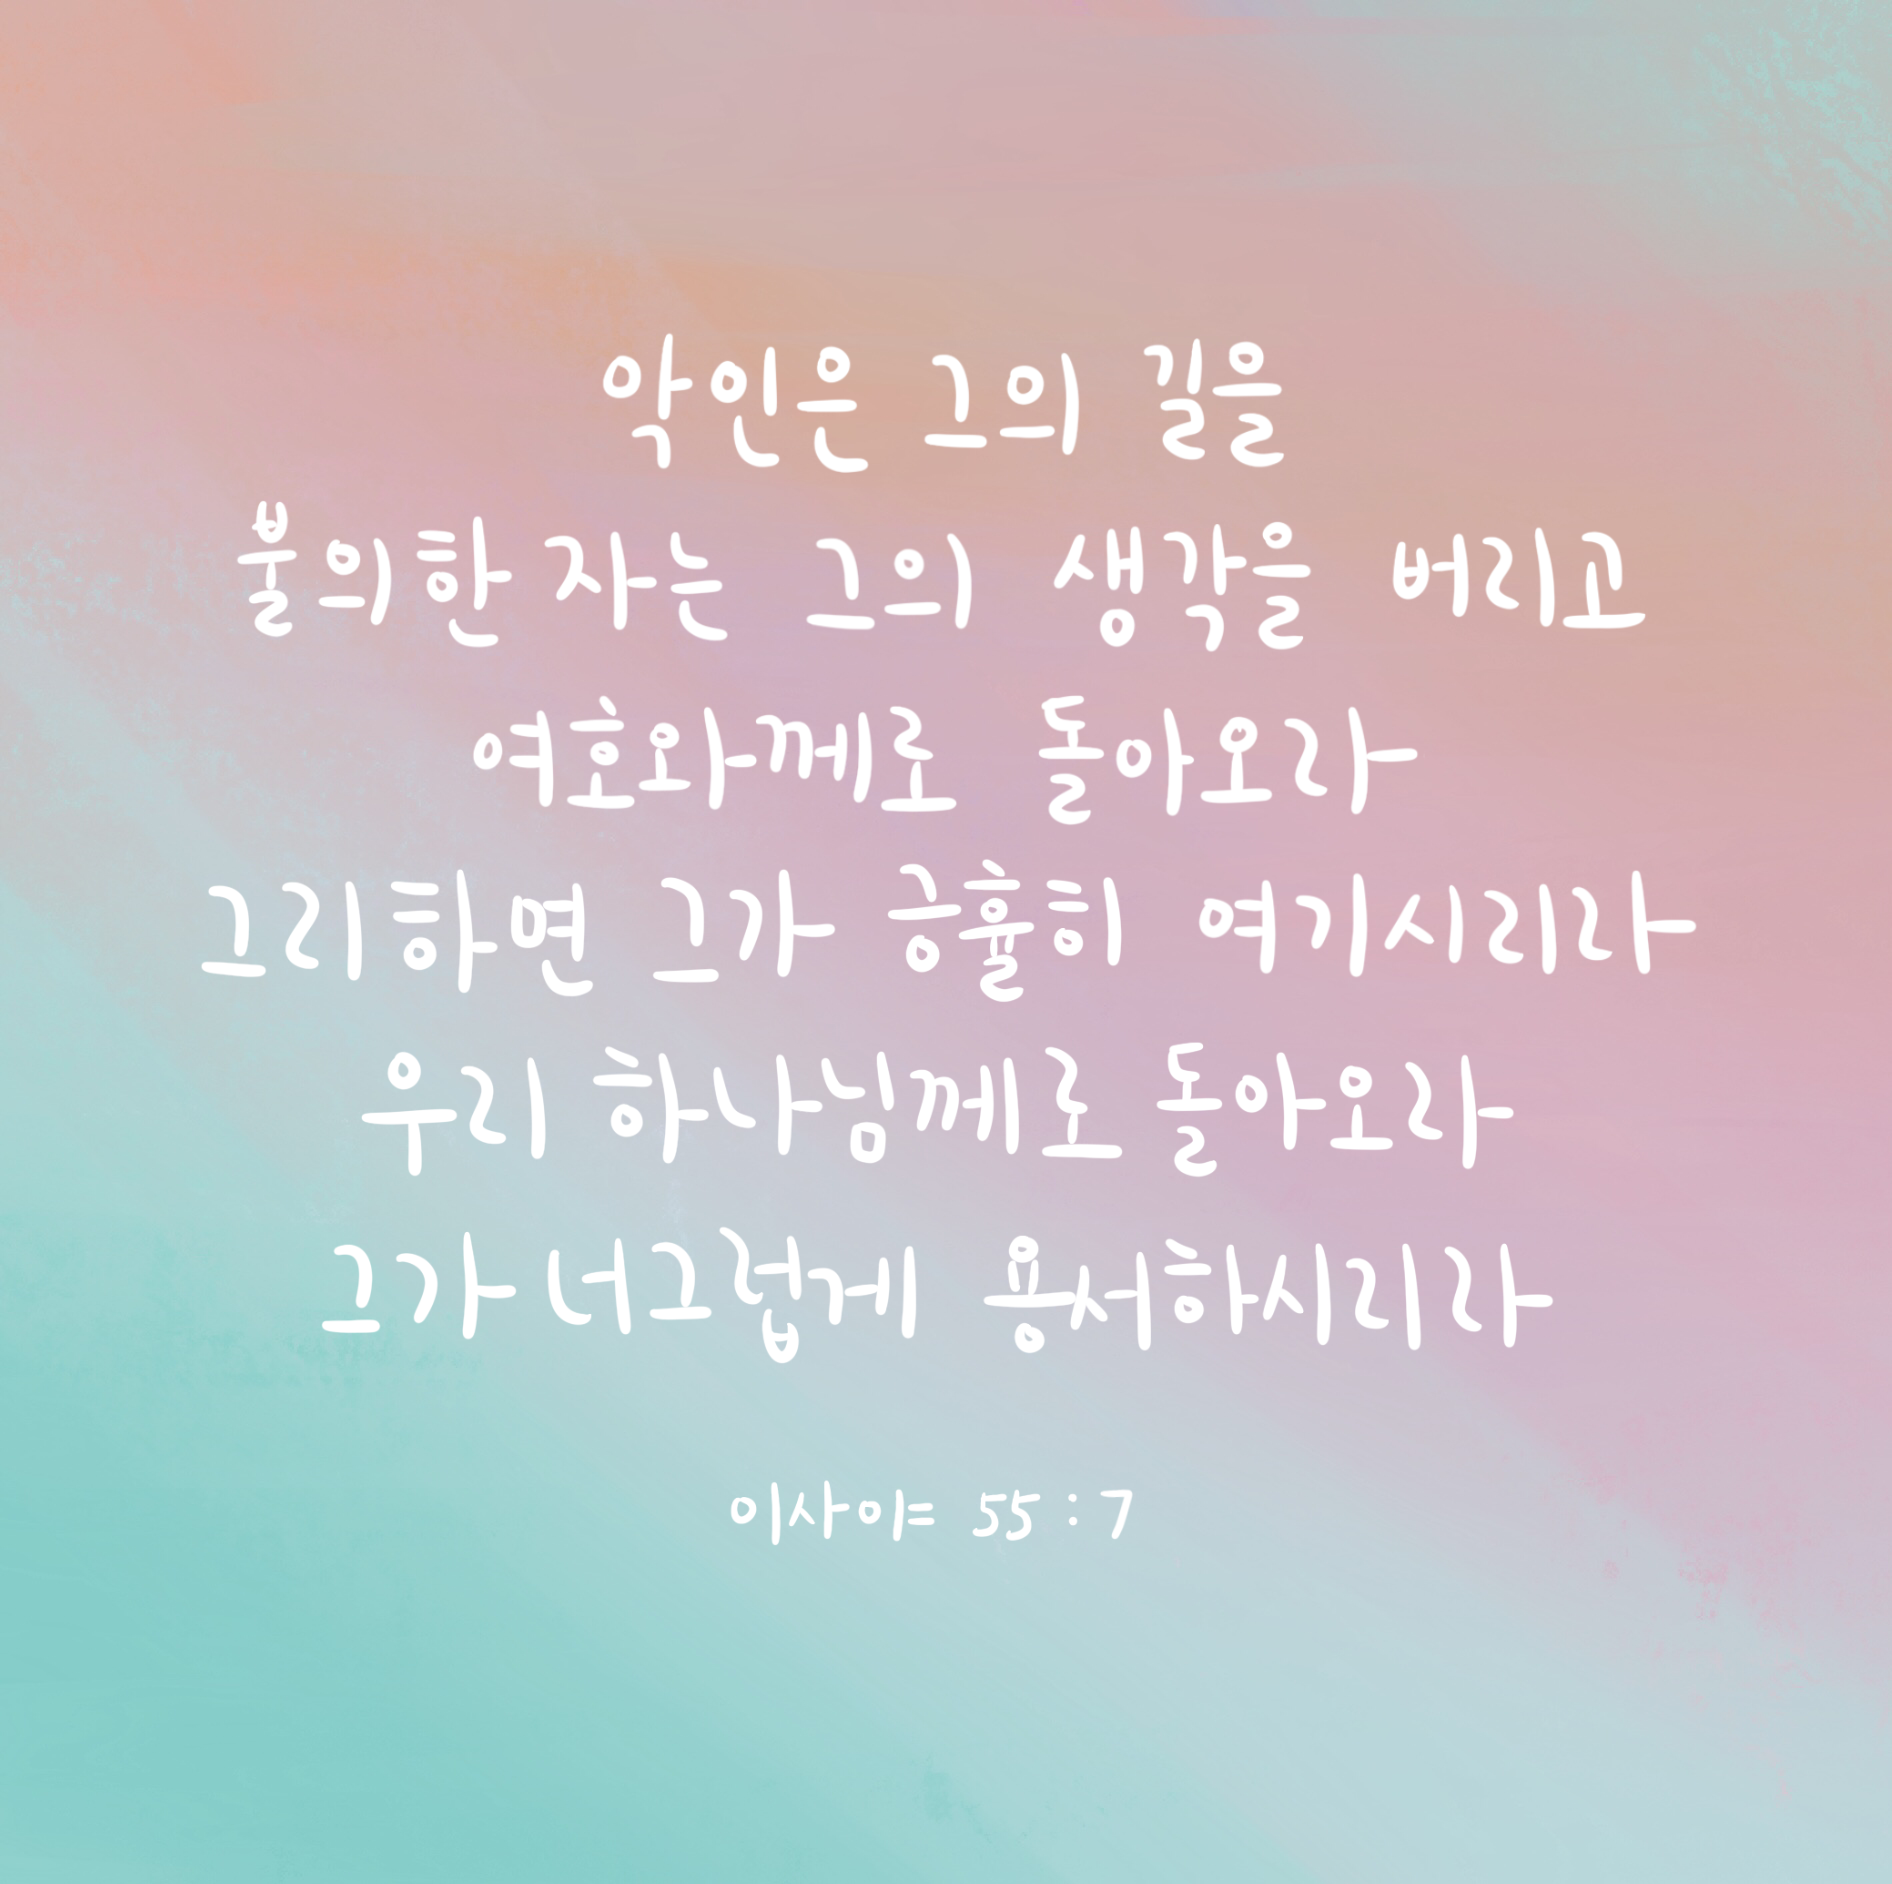 악인은 그의 길을
불의한 자는 그의 생각을 버리고
여호와께로 돌아오라
그리하면 그가 긍휼히 여기시리라
우리 하나님께로 돌아오라
그가 너그럽게 용서하시리라
이사야 55:7